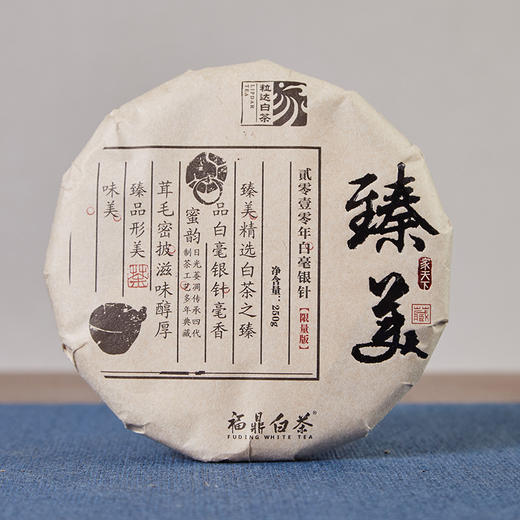 粒达白茶
LIPDAR TEA
臻美
家天下
藏
贰零壹零年白毫银针
【限量版】
净含量:250g
臻美精选白茶之臻
品白毫银针毫香
蜜韵
日光萎凋传承四代
制茶工艺多年典藏
茸毛密披滋味醇厚
臻品形美
茶
味美
福鼎白茶®
FUDING WHITE TEA